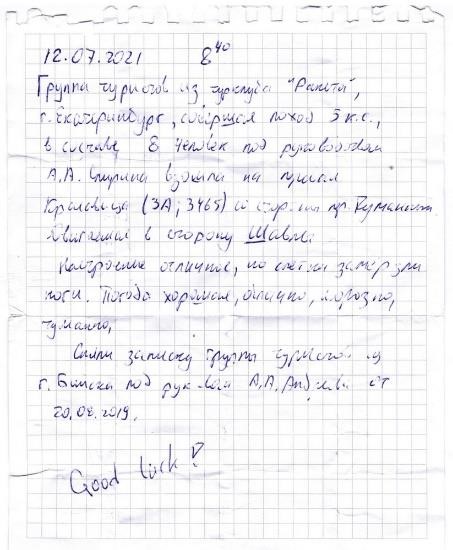 12.07.2021 8⁴⁰
Группа туристов из турклуба "Ракета",
г. Екатеринбург, совершая поход 5 к.с.,
в составе 8 человек под руководством
А.А. взошла на перевал
Красавица (3А, 3465) со стороны
Двигаемся в сторону Шавла.
Настроение отличное, но слегка замерзли
ноги. Погода хорошая, облачно, морозно,
туманно,
Сняли записку группы туристов из
г. Бийска под руков А.А. от
20.08.2019.
Good luck!